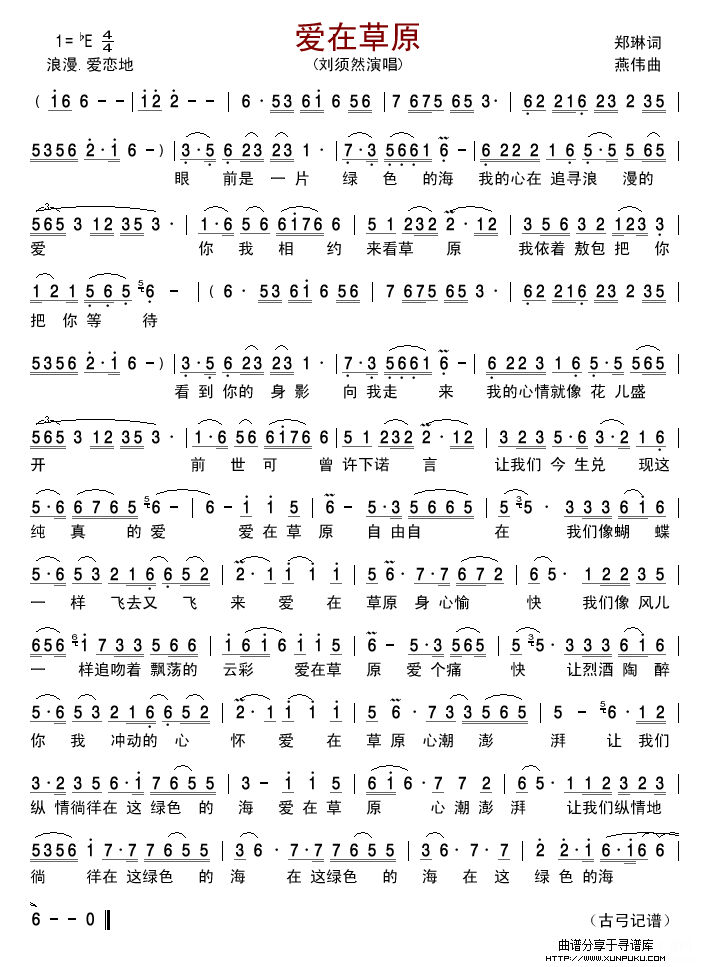 爱在草原
1=♭E 4/4 郑琳词
浪漫.爱恋地 (刘须然演唱) 燕伟曲
( i6 6 - - | i2 2 - - | 6 · 53 6i 6 56 | 7 675 65 3 · | 62 216 23 2 35 |
5356 2 · i 6 - ) | 3 · 5 6 23 23 1 · | 7 · 3 5661 6 - | 6 22 2 1 6 5 5 5 65 |
眼 前是 一 片 绿 色 的海 我的心在 追寻浪 漫的
565 3 12 35 3 · | 1·6 5 6 6i76 6 | 5 1 232 2 · 12 | 3 5 6 3 2 123 3 |
爱 你 我 相 约 来看草 原 我依着 敖包 把 你
1 2 1 5 6 5 6 - | ( 6 · 53 6i 6 56 | 7 675 65 3 · | 62 216 23 2 35 |
把 你 等 待
5356 2 · i 6 - ) | 3 · 5 6 23 23 1 · | 7 · 3 5661 6 - | 6 22 3 1 6 5 · 5 565 |
看 到 你的 身 影 向 我走 来 我的心情就像 花 儿盛
565 3 12 35 3 · | 1·6 56 6i76 6 | 5 1 232 2 · 12 | 3 2 3 5·6 3·2 1 6 |
开 前 世 可 曾 许下诺 言 让我们 今 生兑 现这
5·6 6 7 6 5 6 - | 6 - i i 5 | 6 - 5·3 5 6 6 5 | 5 5 · 3 3 3 6 i 6 |
纯 真 的 爱 爱 在 草 原 自 由自 在 我们像蝴 蝶
5·6 5 3 2 1 6 6 5 2 | 2 · i i i i | 5 6 · 7·7 6 7 2 | 6 5 · 1 2 2 3 5 |
一 样 飞去又 飞 来 爱 在 草原 身 心愉 快 我们像 风儿
6 5 6 i 7 3 3 5 6 6 | i 6 i 6 i i 5 | 6 - 5·3 5 6 5 | 5 5 · 3 3 3 6 i 6 |
一 样追吻着 飘荡的 云彩 爱在草 原 爱 个痛 快 让烈酒 陶 醉
5·6 5 3 2 1 6 6 5 2 | 2 · i i i i | 5 6 · 7 3 3 5 6 5 | 5 - 6 · 1 2 |
你 我 冲动的 心 怀 爱 在 草 原 心潮 澎 湃 让 我们
3·2 3 5 6·i 7 6 5 5 | 3 - i i 5 | 6 i 6 · 7 7 2 | 6 · 3 5 3 3 2 3 5 |
纵 情徜徉在 这 绿色 的 海 爱 在 草 原 心 潮 澎 湃 让我们纵情地
5 3 5 6 i 7·7 7 6 5 5 | 3 6 · 7·7 7 6 5 5 | 3 6 · 7·7 7 | 2 2·i 6 i 6 |
徜 徉在 这绿色 的 海 在 这绿色 的 海 在 这 绿 色 的海
6 - - 0 ‖ (古弓记谱)
曲谱分享于寻谱库
HTTP://WWW.XUNPUKU.COM